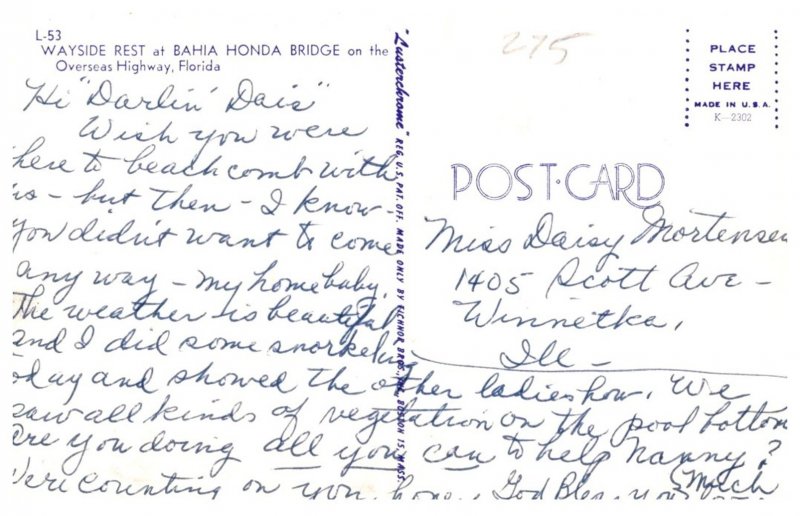 L-53
WAYSIDE REST at BAHIA HONDA BRIDGE on the
Overseas Highway, Florida
Hi "Darlin' Dais"
Wish you were
here to beachcomb with
us - but then - I know -
you didn't want to come
any way - my homebaby.
The weather is beautiful
and I did some snorkeling
today and showed the other ladies how. We
saw all kinds of vegetation on the pool bottom
Are you doing all you can to help Nanny?
We're counting on you, hon. God Bless you
Much
"Lusterchrome" REG. U.S. PAT. OFF. MADE ONLY BY EICHNOR BROS., INC., BOSTON 15, MASS.
275
PLACE
STAMP
HERE
MADE IN U.S.A.
K-2302
POST-CARD
Miss Daisy Mortensen
1405 Scott Ave -
Winnetka,
Ill -